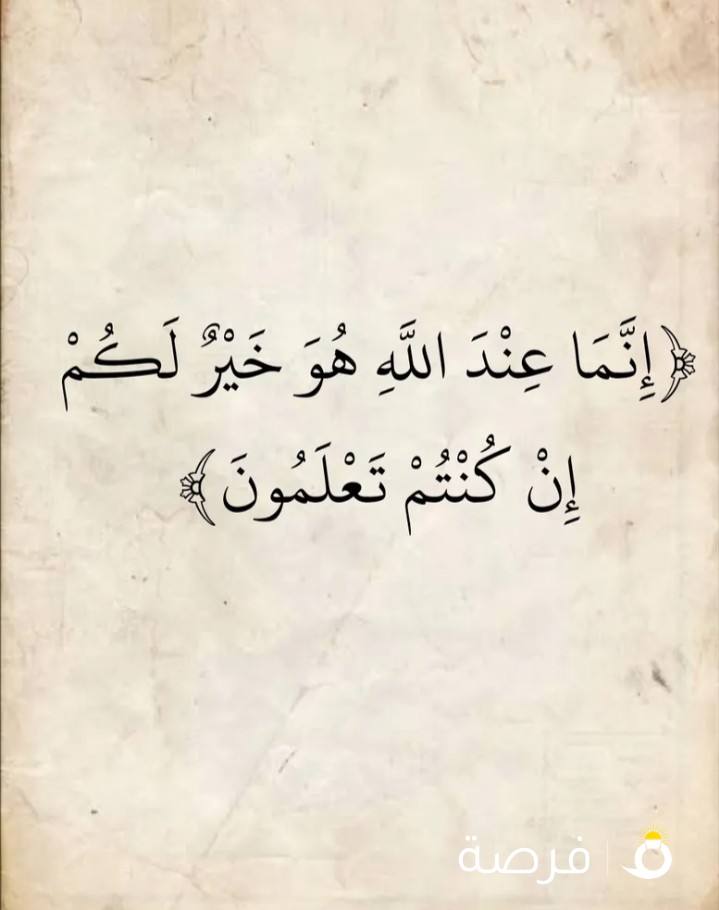 ﴿إِنَّمَا عِنْدَ اللَّهِ هُوَ خَيْرٌ لَكُمْ
إِنْ كُنْتُمْ تَعْلَمُونَ﴾
فرصة